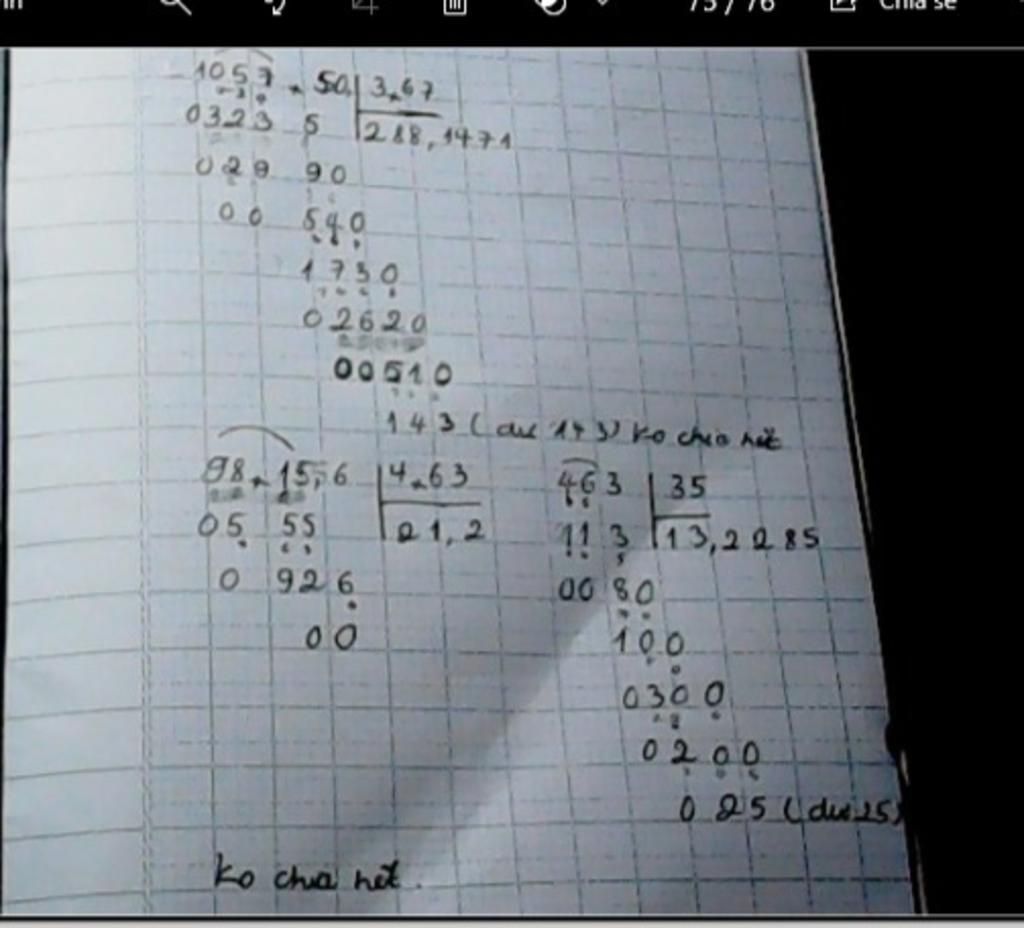 75 / 76 Chia sẻ
1057,50 3,67
0323 5 288,1471
029 90
00 540
1730
02620
00510
143 (dư 143) ko chia hết
98,15,6 4,63
05 55 21,2
0 926
00
463 35
113 13,2285
0080
100
0300
0200
025 (dư 25)
ko chia hết.